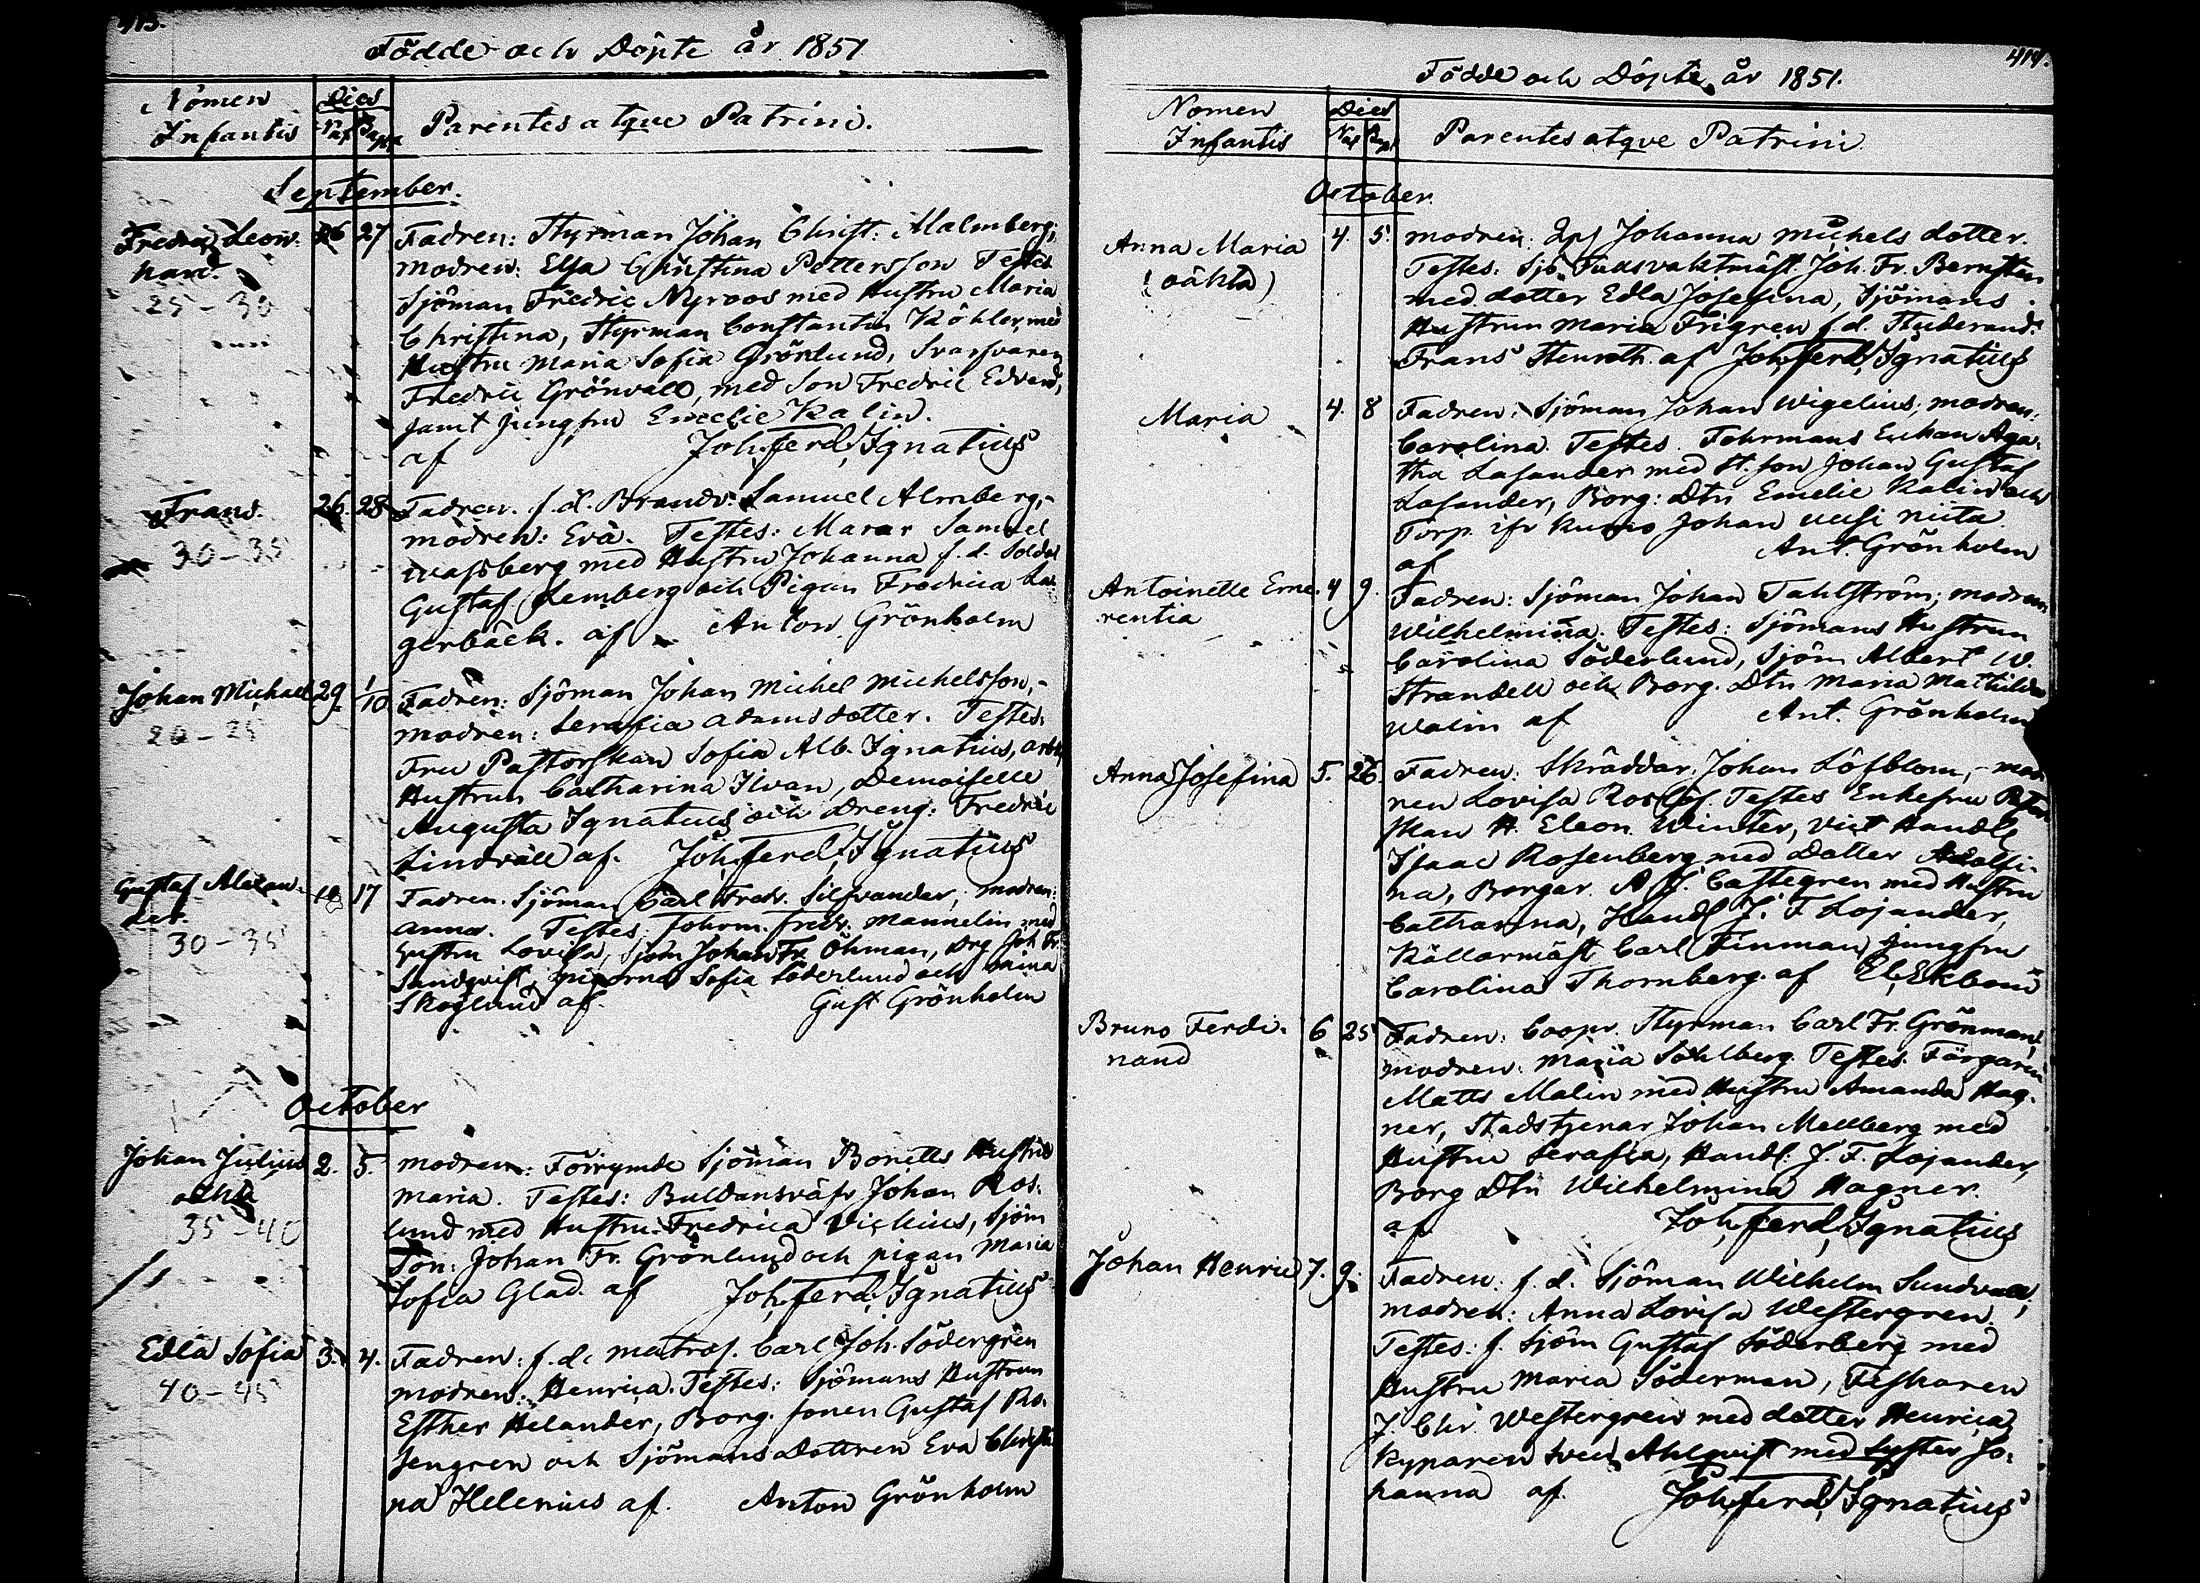 413.
Födde och Döpte år 1851
Nomen Infantis
Dies
Nat Bapt
Parentes atque Patrini.
September.
Fredric Leon-
hard.
25-30
26 27 Fadren: Styrman Johan Christ: Malmberg;
modren: Elsa Christina Pettersson Testes
Sjöman Fredric Nyroos med Hustru Maria
Christina, Styrman Constantin Köhler, med
Hustru Maria Sofia Grönlund, Svarfvaren
Fredric Grönvall, med Son Fredric Edvard,
samt jungfru Emelie Kalin.
af Joh. Ferd. Ignatius
Frans.
30-35
26. 28 Fadren. f.d. Brandv. Samuel Almberg,-
modren: Eva. Testes: Murar Samuel
Wassberg med Hustru Johanna f.d. Soldat
Gustaf Lemberg och Pigan Fredrica La-
gerbäck. af Anton Grönholm
Johan Michael
20-25
29 1/10 Fadren: Sjöman Johan Michel Michelsson,-
modren: Serafia Adamsdotter. Testes.
Fru Pastorskan Sofia Alb. Ignatius, arb.
Hustrun Catharina Ilvan, Demoiselle
Augusta Ignatius och Dreng: Fredric
Lindvall af. Joh. Ferd. Ignatius
Gustaf Alexan-
der.
30-35
17 Fadren. Sjöman Carl Fredr. Silfvander, modren:
Anna. Testes: Fohrm. Fredr. Mannelin med
Hustru Lovisa, Sjöm Johan Fr. Öhman, Drg Joh Fr.
Sandqvist, pigorna Sofia Söderlund och
Skoglund af. Gust Grönholm
October
Johan Julius
oächta
35-40
2. 5. modren: Förrymde Sjöman Hustru
Maria. Testes: Johan Ros-
lund med Hustru Fredrica Vickius, Sjöm
Son: Johan Fr. Grönlund och pigan Maria
Sofia Glad. af Joh. Ferd. Ignatius
Edla Sofia
40-45
3. 4. Fadren: f.d. matros. Carl Joh. Södergrén
modren: Henrica. Testes: Sjömans Hustrun
Esther Helander, Borg. sonen Gustaf Ro-
sengren och Sjömans Dottren Eva Christi-
na Helenius af. Anton Grönholm
414.
Födde och Döpte år 1851.
Nomen
Infantis
Dies
Nat Bapt
Parentes atqve Patrini
October.
Anna Maria
(oäkta)
4. 5. modren: Johanna Michels dotter.
Testes: Joh. Fr. Bernsten
med dotter Edla Josefina, Sjömans
Hustrun Maria Frigren f.d. Studerand.
Frans Stenroth. af Joh. Ferd. Ignatius
Maria
4. 8 Fadren: Sjöman Johan Wigelius; modren:
Carolina. Testes. Fohrmans Enkan Aga-
tha Lasander med st. son Johan Gustaf
Lasander, Borg: Dtn Emelie Kalin och
Torp. ifr Kumo Johan uusi niita
af Ant. Grönholm
Antoinette Eme-
rentia
4 9. Fadren: Sjöman Johan Tahlström; modren
Wilhelmina. Testes: Sjömans Hustrun
Carolina Söderlund, Sjöm Albert W.
Strandell och Borg. Dtn Maria Mathilda
Walin af Ant. Grönholm
Anna Josefina
5. 26. Fadren: Skräddar. Johan Löfblom,- mod-
ren Lovisa Testes Enkefru
H. Eleon. Winter, Handl.
Isaac Rosenberg med Dotter Adolfi-
na, Borgar. Castegren med Hustru
Catharina, Handl. J. F. Lojander,
Källarmäst Carl Finman, Jungfru
Carolina Thornberg. af El. Ekbom
Bruno Ferdi-
nand
6 25 Fadren: Coopv. Styrman Carl Fr. Grönman,
modren: Maria Sohlberg. Testes. Färgaren
Matts Malin med Hustru Amanda Hag-
ner, Stadstjenar Johan Mellberg med
Hustru Serafia, Handl. J. F. Lojander,
Borg Dtn Wilhelmina Hagner.
af Joh. Ferd. Ignatius
Johan Henric
7. 9. Fadren: f.d. Sjöman Wilhelm Sundvall,
modren: Anna Lovisa Westergren.
Testes: f. Sjöm Gustaf Söderberg med
Hustru Maria Söderman, Fiskaren
J. Chr. Westergren med dotter Henrica,
Kyparen Sven Ahlqvist med Syster Jo-
hanna af. Joh. Ferd. Ignatius